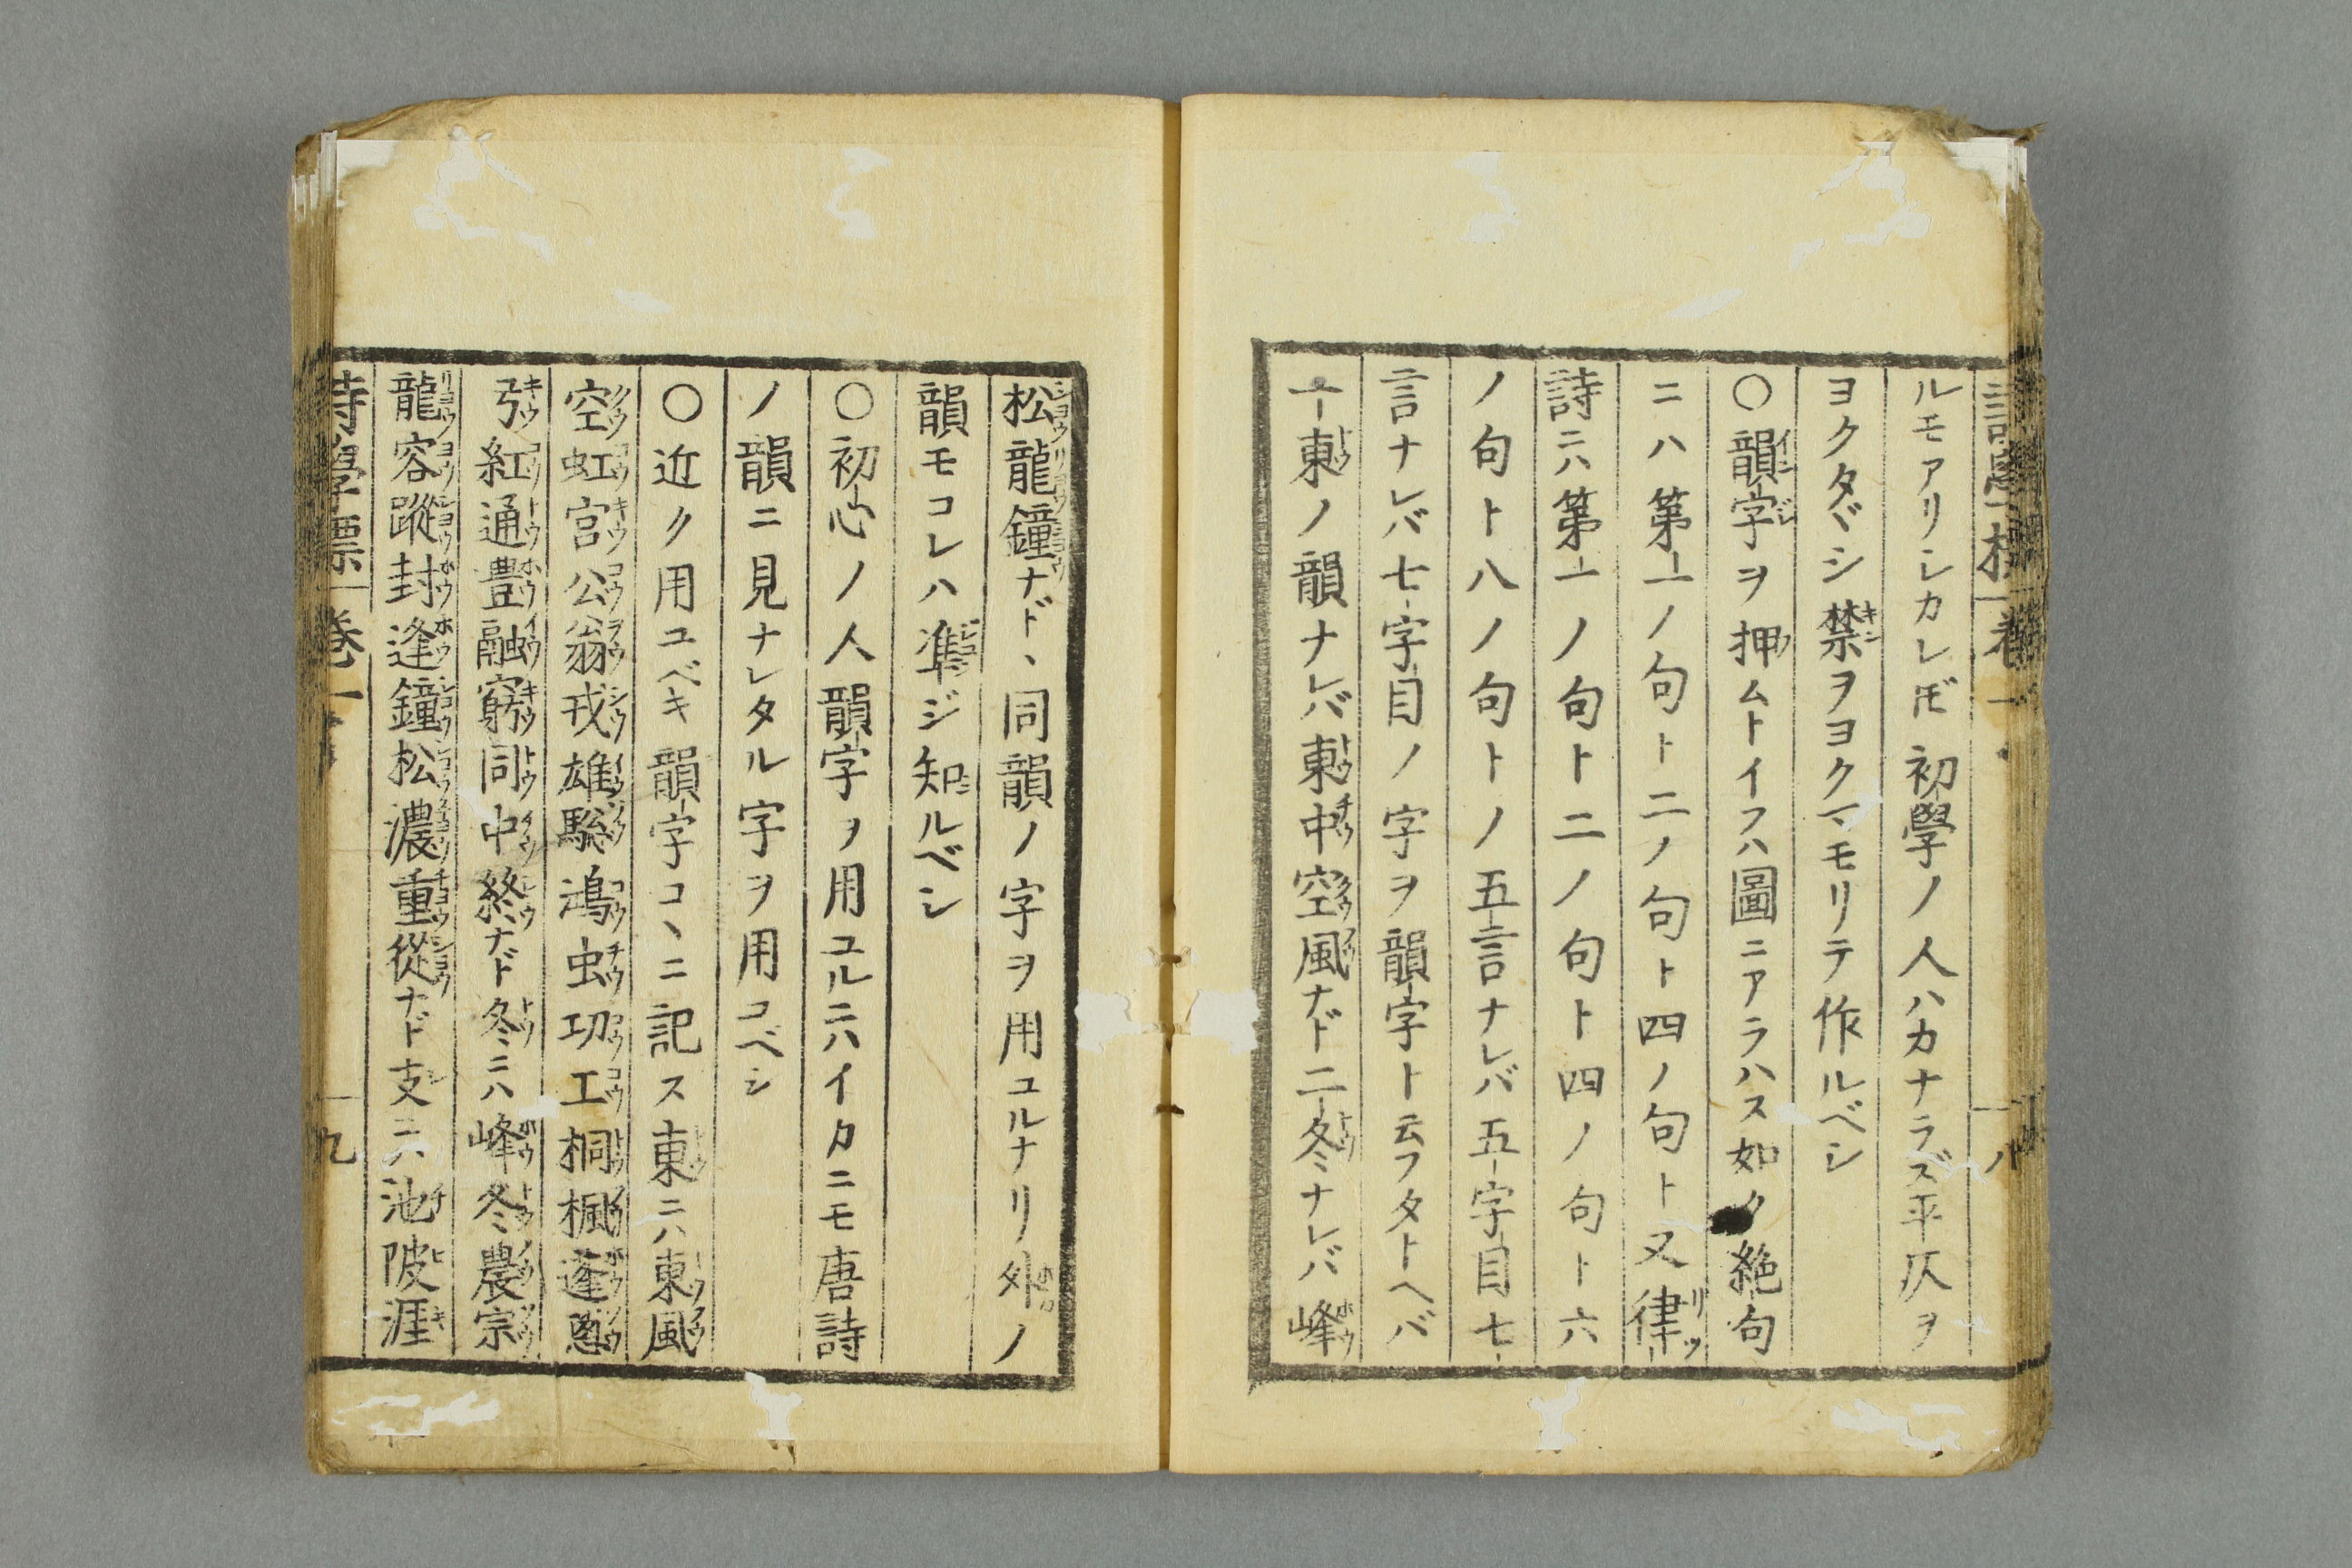 ルモアリシカレ𪜈初學ノ人ハカナラズ平仄ヲ
ヨクタヾシ禁ヲヨクマモリテ作ルベシ
○韻字ヲ押ムトイフハ圖ニアラハス如ク絶句
ニハ第一ノ句ト二ノ句ト四ノ句ト又律
詩ニハ第一ノ句ト二ノ句ト四ノ句ト六
ノ句ト八ノ句トノ五言ナレバ五字目七
言ナレバ七字目ノ字ヲ韻字ト云フタトヘバ
一東ノ韻ナレバ東中空風ナド二冬ナレバ峰
松龍鐘ナド、同韻ノ字ヲ用ユルナリ外ノ
韻モコレハ準ジ知ルベシ
○初心ノ人韻字ヲ用ユルニハイカニモ唐詩
ノ韻ニ見ナレタル字ヲ用コベシ
○近ク用ユベキ韻字コヽニ記ス東ニハ東風
空虹宮公翁戎雄驄鴻虫功工桐楓蓬
弓紅通豊融窮同中終ナド冬ニハ峰冬農宗
龍容蹤封逢鐘松濃重從ナド支ニハ池陂涯
詩學標 卷一 九